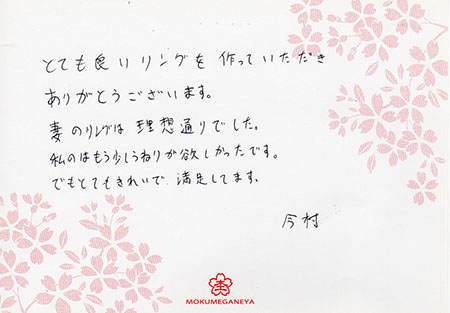 とても良いリングを作っていただき
ありがとうございます。
妻のリングは理想通りでした。
私のはもう少しうねりが欲しかったです。
でもとてもきれいで、満足してます。
今村
MOKUMEGANEYA